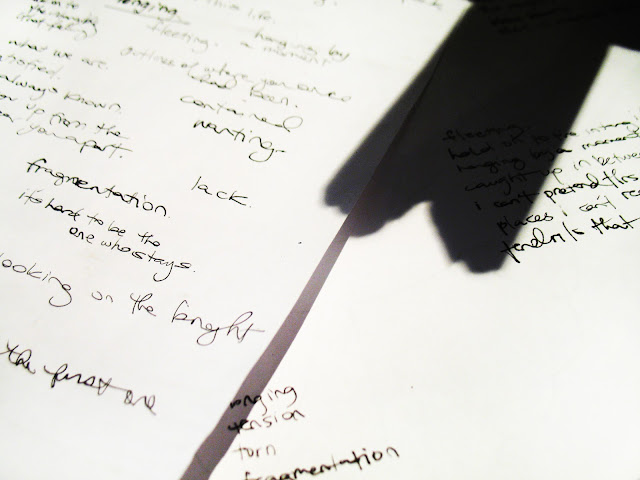 longing
this life.
fleeting.
hanging by
a moment
what we are.
outlines of where you once
had been.
always known.
contained
up from the
wanting
you apart.
fragmentation.
lack.
it's hard to be the
one who stays.
looking on the
the first one
fleeting
hold on to the
hanging by a moment
caught up in between
i can't pretend this
places i can't
tendrils that
longing
tension
torn
fragmentation